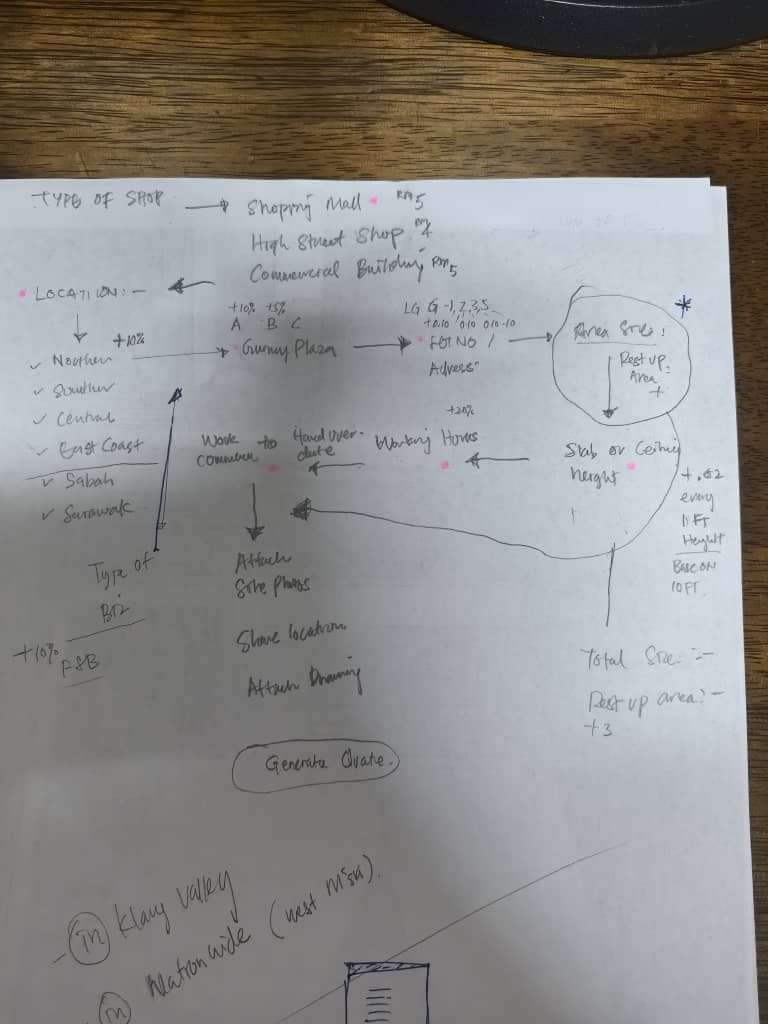 TYPE OF SHOP → Shopping Mall • RM5
High Street Shop RM4
Commercial Building RM5
• LOCATION :-
+10% +5%
A B C
LG G -1, 2, 3, 5
+0.10 0.10 0.10 .10
Northern +10%
• Gurney Plaza
LOT NO /
Adress
Area Size:
Rest up
Area
+
✓ Southern
✓ Central
✓ East Coast
✓ Sabah
✓ Sarawak
Work
commence
to Hand over
date
Working Hours
+20%
Slab or Ceiling
height
+.02
every
1 FT
Height
BASE ON
10 FT.
Type of
Biz
+10%
F&B
Attach
Site Photos
Share location
Attach Drawing
Total Size :-
Rest up area :-
+3
Generate Quote.
- in Klang Valley
in Nationwide (West M'sia).